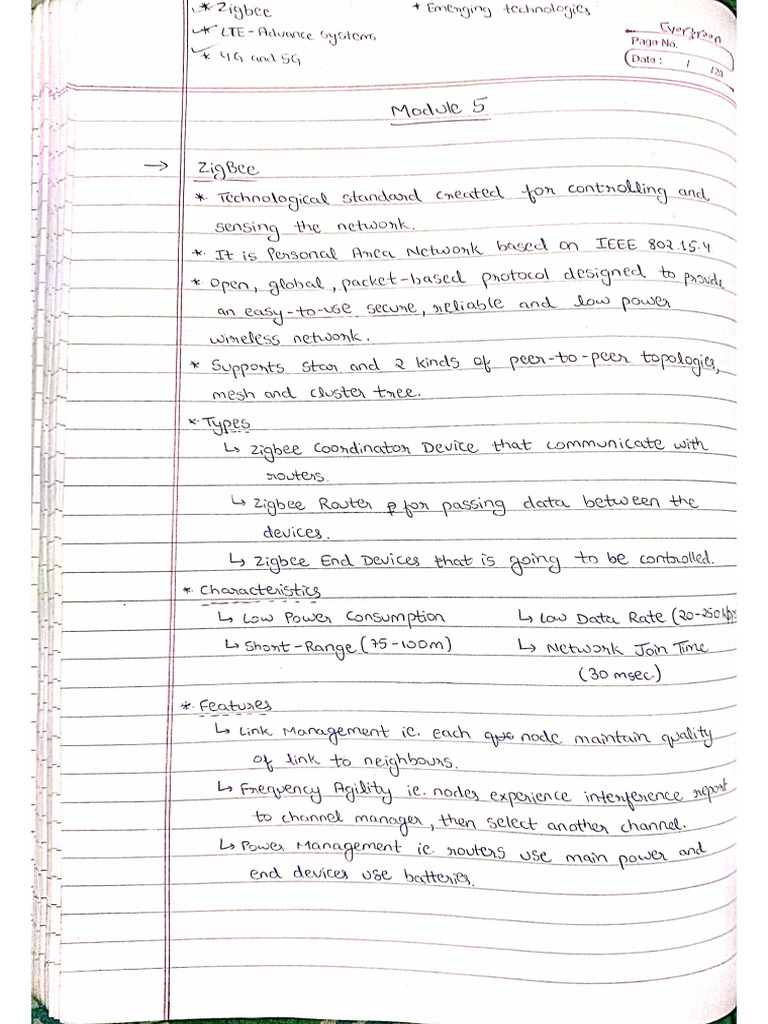 * Zigbee
* Emerging technologies
* LTE-Advance systems
* 4G and 5G
Evergreen
Page No.
Date : / /20
Module 5
→ ZigBee
* Technological standard created for controlling and
sensing the network.
* It is Personal Area Network based on IEEE 802.15.4
* Open, global, packet-based protocol designed to provide
an easy-to-use secure, reliable and low power
wireless network.
* Supports star and 2 kinds of peer-to-peer topologies,
mesh and cluster tree.
* Types
↳ Zigbee Coordinator Device that communicate with
routers.
↳ Zigbee Router for passing data between the
devices.
↳ Zigbee End Devices that is going to be controlled.
* Characteristics
↳ Low Power Consumption ↳ Low Data Rate (20-250kbps
↳ Short-Range (75-100m) ↳ Network Join Time
(30 msec)
* Features
↳ Link Management ie. each node maintain quality
of link to neighbours.
↳ Frequency Agility ie. nodes experience interference report
to channel manager, then select another channel.
↳ Power Management ie. routers use main power and
end devices use batteries.